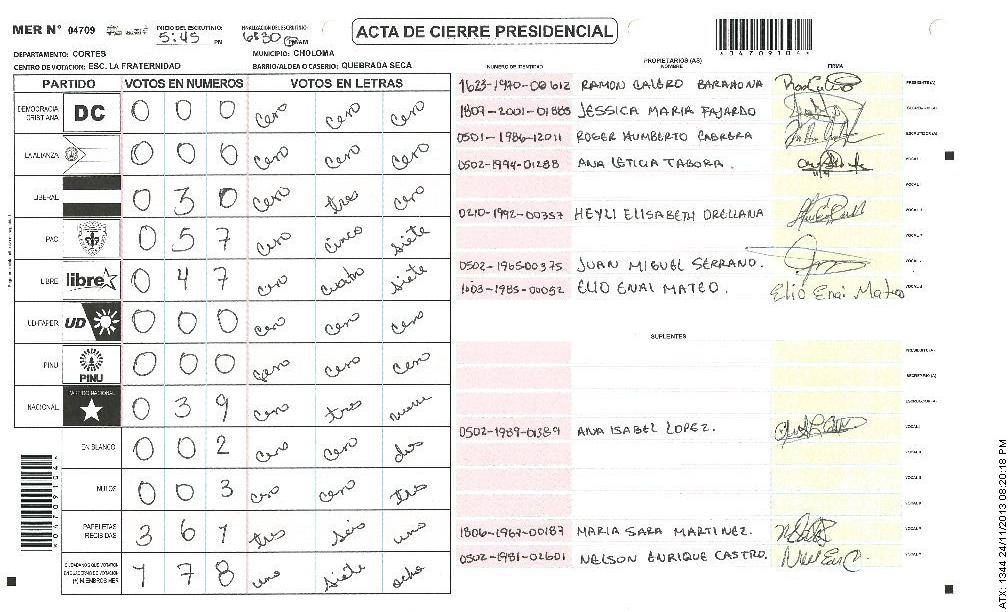 MER N° 04709 INICIO DEL ESCRUTINIO: 5:45 PM FINALIZACION DEL ESCRUTINIO: 6:30 PM AM
ACTA DE CIERRE PRESIDENCIAL
DEPARTAMENTO: CORTES MUNICIPIO: CHOLOMA
CENTRO DE VOTACION: ESC. LA FRATERNIDAD BARRIO/ALDEA O CASERIO: QUEBRADA SECA
PARTIDO VOTOS EN NUMEROS VOTOS EN LETRAS
DEMOCRACIA CRISTIANA DC 0 0 0 cero cero cero
LA ALIANZA 0 0 0 cero cero cero
LIBERAL 0 3 0 cero tres cero
PAC 0 5 7 cero cinco siete
LIBRE libre 0 4 7 cero cuatro siete
UD-FAPER UD 0 0 0 cero cero cero
PINU PINU 0 0 0 cero cero cero
NACIONAL PARTIDO NACIONAL 0 3 9 cero tres nueve
EN BLANCO 0 0 2 cero cero dos
NULOS 0 0 3 cero cero tres
PAPELETAS RECIBIDAS 3 6 1 tres seis uno
CIUDADANOS QUE VOTARON 1 7 8 uno siete ocho
(+) MIEMBROS MER
PROPIETARIOS (AS)
NUMERO DE IDENTIDAD NOMBRE FIRMA
1623-1970-00612 RAMON CALERO BARAHONA PRESIDENTE(A)
1807-2001-01885 JESSICA MARIA FAJARDO SECRETARIO(A)
0501-1986-12011 ROGER HUMBERTO CABRERA ESCRUTADOR(A)
0502-1994-01288 ANA LETICIA TABORA. VOCAL I
0210-1992-00357 HEYLI ELISABETH ORELLANA
0502-1965-00375 JUAN MIGUEL SERRANO.
1603-1985-00052 ELIO ENAI MATEO. Elio Enai Mateo
SUPLENTES
PRESIDENTE(A)
SECRETARIO(A)
ESCRUTADOR(A)
0502-1989-01389 ANA ISABEL LOPEZ. VOCAL I
1806-1967-00187 MARIA SARA MARTINEZ.
0502-1981-02601 NELSON ENRIQUE CASTRO.
ATX: 1344 24/11/2013 08:20:18 PM